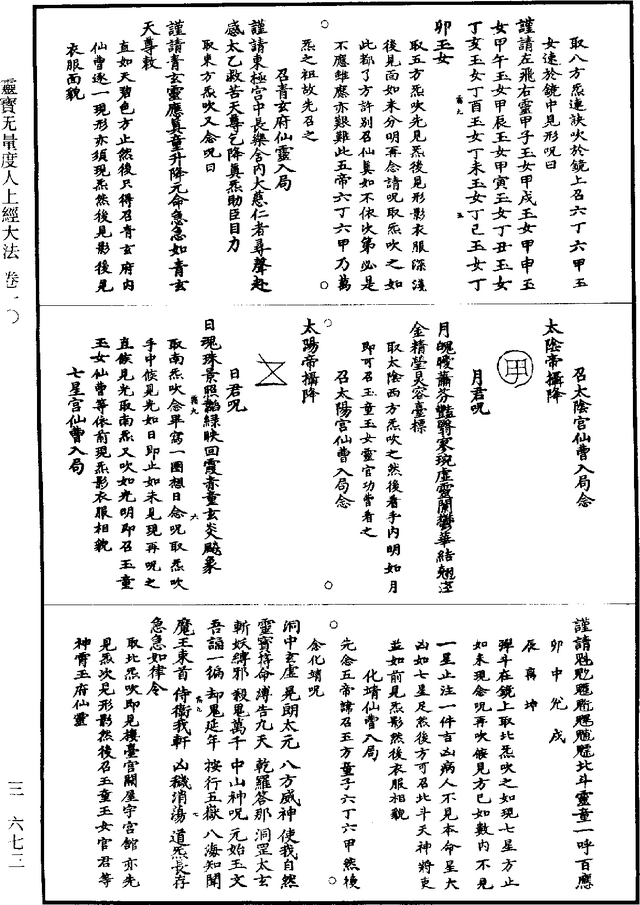 取八方炁速訣吹於鏡上召六丁六甲玉
女速於鏡中見形呪曰
謹請左飛右靈甲子玉女甲戌玉女甲申玉
女甲午玉女甲辰玉女甲寅玉女丁丑玉女
丁亥玉女丁酉玉女丁未玉女丁巳玉女丁
卯玉女
取五方炁吹先見炁後見形影衣服深淺
後見面如未分明再念請呪取炁吹之如
此都了方許別召仙真如不依次第必是
不應雖應亦艱難此五帝六丁六甲乃萬
炁之祖故先召之
召青玄府仙靈入局
謹請東極宮中長樂舍內大慈仁者尋聲赴
感太乙救苦天尊乞降真炁助臣目力
取東方炁吹又念呪曰
謹請青玄靈應真童升降元命急急如青玄
天尊敕
直如天碧色方止然後只得召青玄府內
仙曹逐一現形亦須現炁然後見影後見
衣服面貌
召太陰宮仙曹入局念
太陰帝攝降
月君呪
月魄曖蕭芬豔翳寥婉虛靈蘭鬱華結翹淫
金精瑩炅容臺標
取太陰西方炁吹之然後看手內明如月
即可召玉童玉女靈官功曹看之
召太陽宮仙曹入局念
太陽帝攝降
日君呪
日魂珠景照韜綠映回霞赤童玄炎飈象
取南炁吹念畢寫一圈想日念呪取炁吹
手中候見光如日即止如未見現再呪之
直候見光取南炁又吹如光明即召玉童
玉女仙曹等依前現炁影衣服相貌
七星宮仙曹入局
謹請魁𩲃𩵄𩳐𩵀𩴂魒北斗靈童一呼百應
卯 申 兌 戌
辰 離 坤
彈斗在鏡上取北炁吹之如現七星方止
如未現念呪再吹候見方已如數內不見
一星止注一件吉凶病人不見本命星大
凶如七星足然後方可召北斗天神將吏
並如前見炁影然後衣服相貌
化靖仙曹入局
先念五帝諱召五方童子六丁六甲然後
念化靖呪
洞中玄虛 晃朗太元 八方威神 使我自然
靈寶符命 溥告九天 乾羅答那 洞罡太玄
斬妖縛邪 殺鬼萬千 中山神呪 元始玉文
吾誦一徧 却鬼延年 按行五嶽 八海知聞
魔王束首 侍衛我軒 凶穢消蕩 道炁長存
急急如律令
取北炁吹即見樓臺宮闕屋宇宮館亦先
見炁次見形影然後召玉童玉女官君等
神霄玉府仙靈
靈寶无量度人上經大法 卷一〇
三 六七三